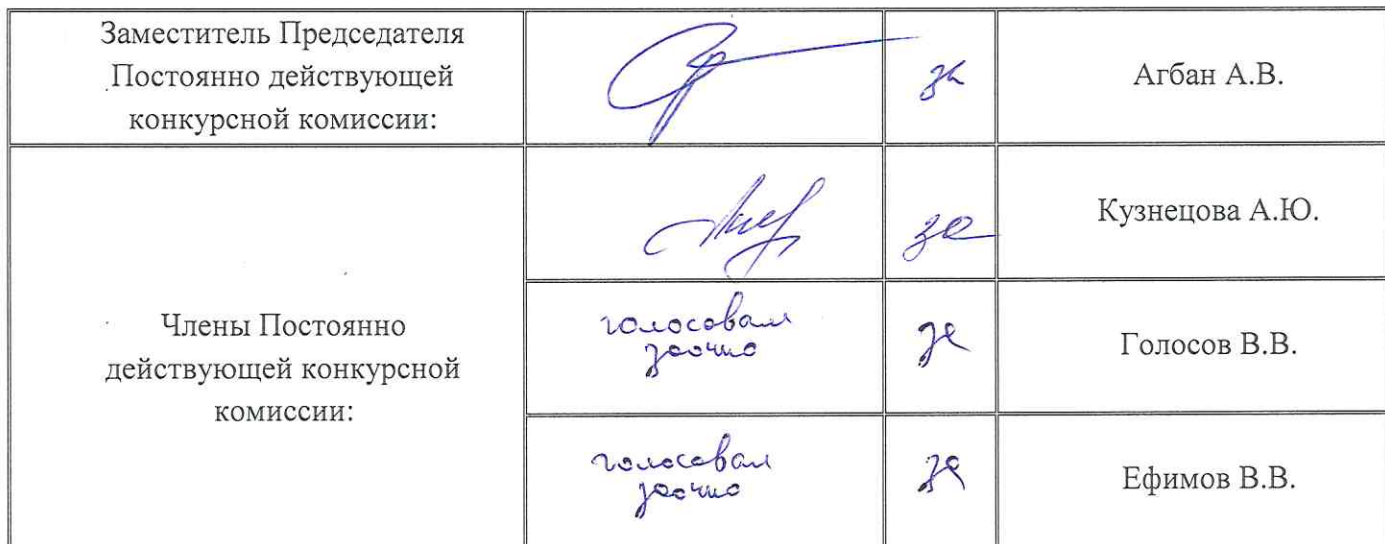 Заместитель Председателя
Постоянно действующей
конкурсной комиссии:
за
Агбан А.В.
Члены Постоянно
действующей конкурсной
комиссии:
за
Кузнецова А.Ю.
голосовал
заочно
за
Голосов В.В.
голосовал
заочно
за
Ефимов В.В.